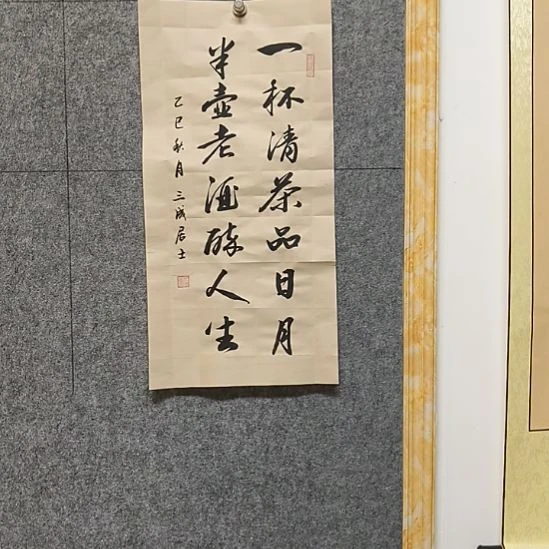 一杯清茶品日月
半壶老酒醉人生
乙巳秋月 三成居士